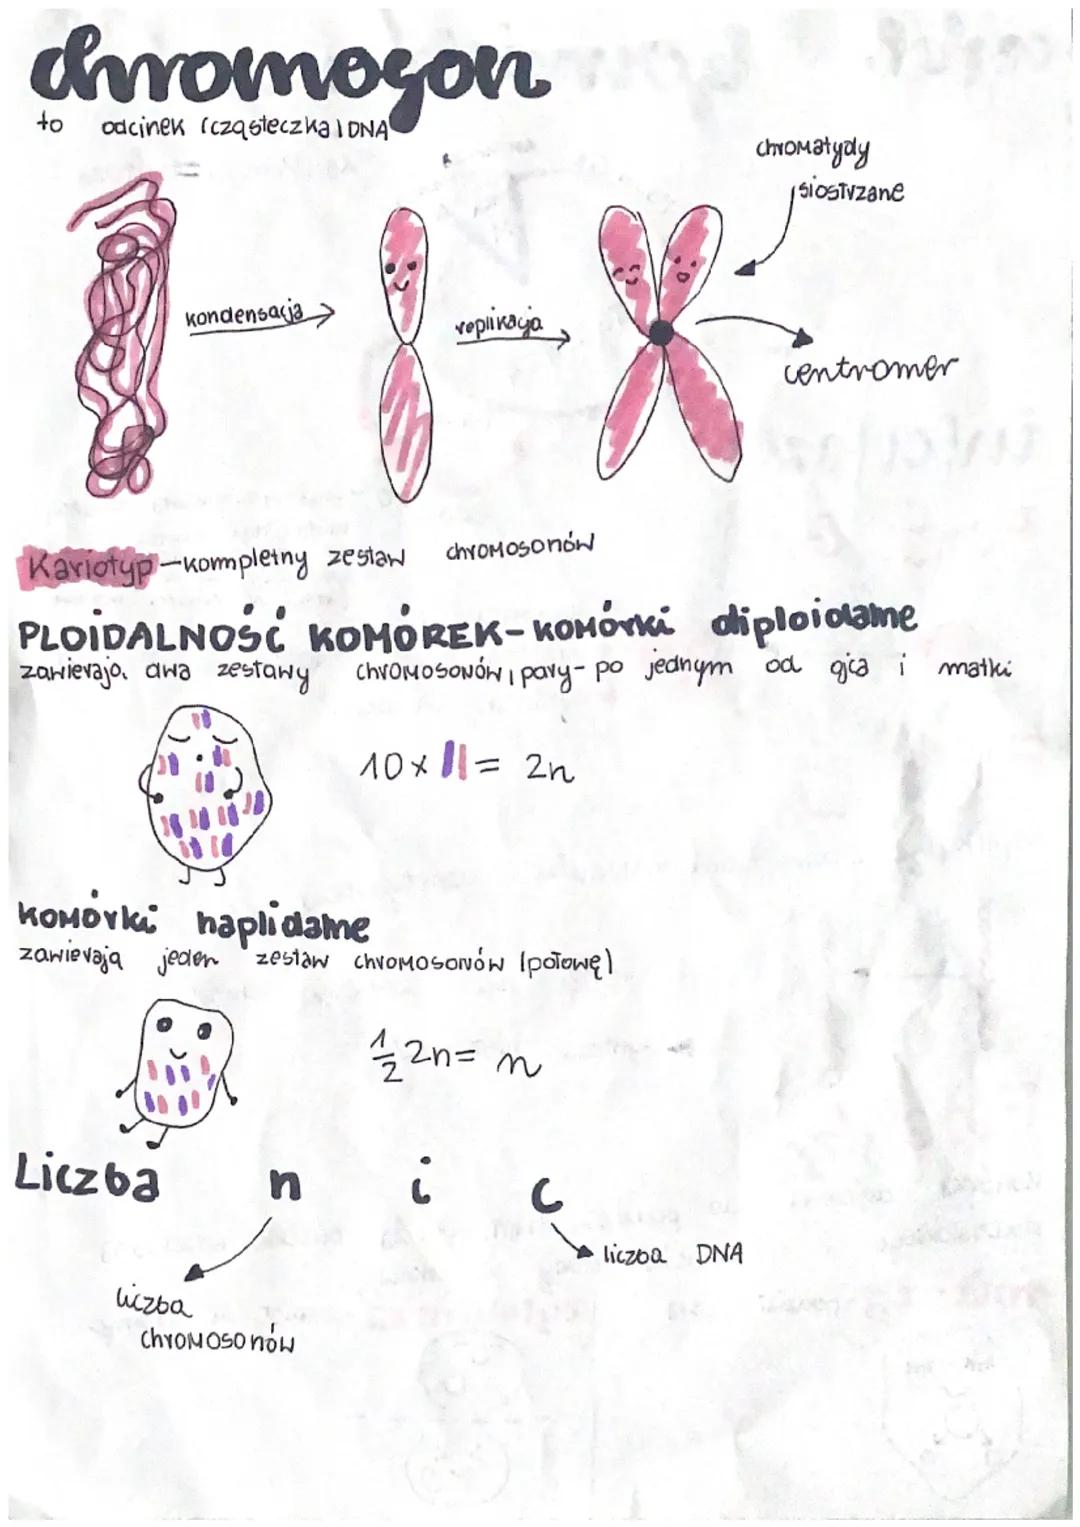 chromoson
to odcinek (cząsteczka) DNA
chromatydy
siostrzane
kondensacja
replikacja
centromer
Kariotyp - kompletny zestaw chromosonów
PLOIDALNOŚĆ KOMÓREK - KOMÓRKI diploidalne
zawierają dwa zestawy chromosonów, pary - po jednym od ojca i matki
10 x = 2n
KOMÓRKI haplidalne
zawierają jeden zestaw chromosonów (połowę)
1/2 2n = n
Liczba n i c
liczba DNA
liczba
chromosonów